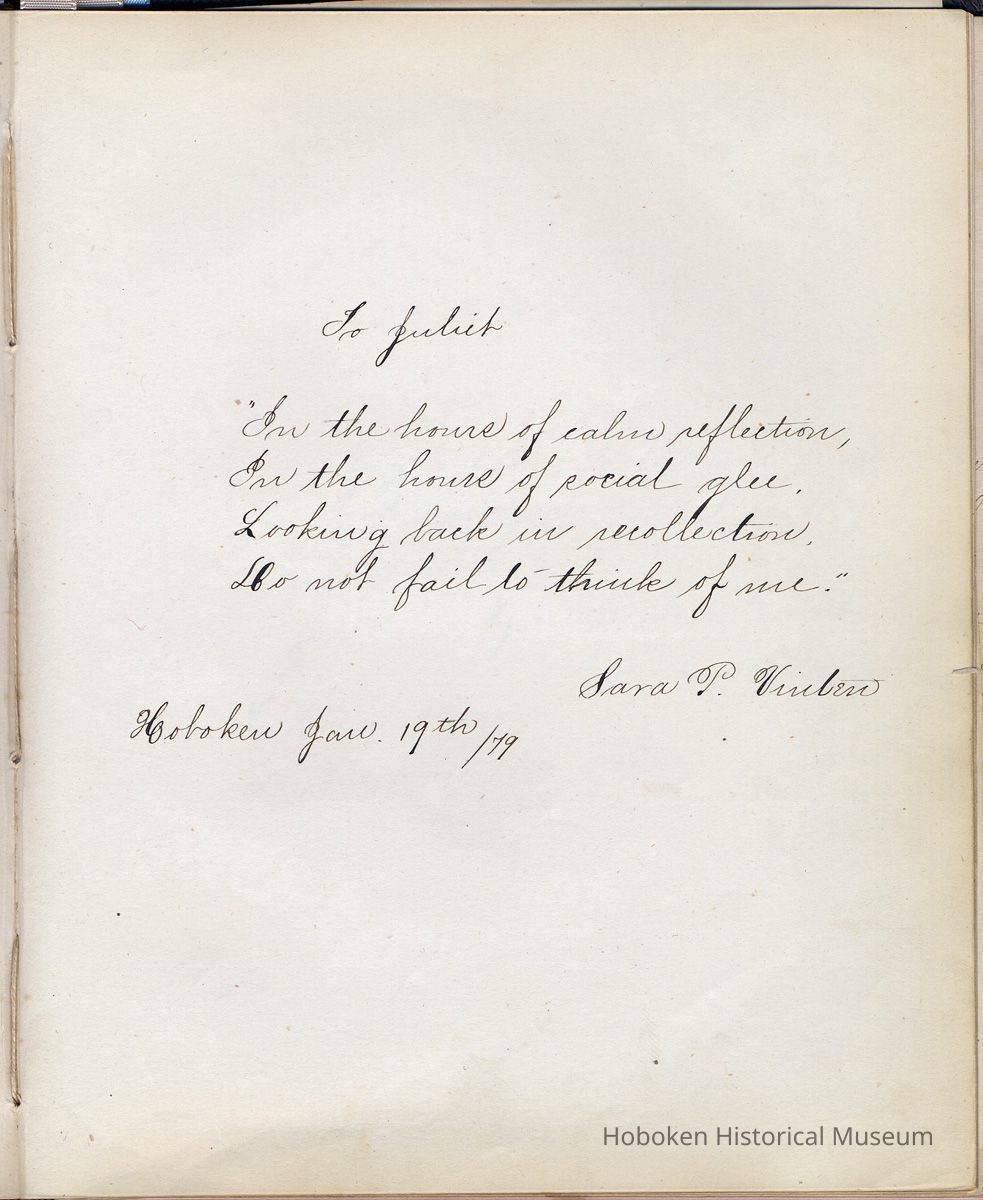 To Juliet
"In the hours of calm reflection,
In the hours of social glee,
Looking back in recollection,
Do not fail to think of me."
Sara P. Vinten
Hoboken Jan. 19th/79
Hoboken Historical Museum